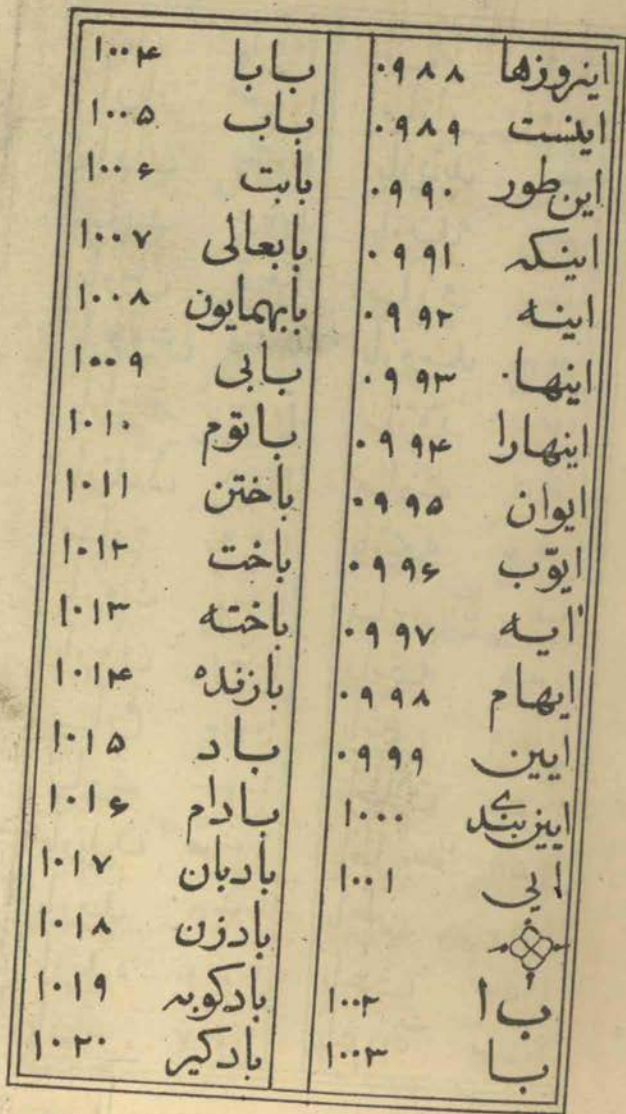 اینروزها ۰۹۸۸
اینست ۰۹۸۹
این طور ۰۹۹۰
اینکه ۰۹۹۱
اینه ۰۹۹۲
اینها ۰۹۹۳
اینهارا ۰۹۹۴
ایوان ۰۹۹۵
ایوّب ۰۹۹۶
ایه ۰۹۹۷
ایهام ۰۹۹۸
ایین ۰۹۹۹
ایین بندی ۱۰۰۰
ایی ۱۰۰۱
ب ا ۱۰۰۲
با ۱۰۰۳
بابا ۱۰۰۴
باب ۱۰۰۵
بابت ۱۰۰۶
بابعالی ۱۰۰۷
بابهمایون ۱۰۰۸
بابی ۱۰۰۹
باتوم ۱۰۱۰
باختن ۱۰۱۱
باخت ۱۰۱۲
باخته ۱۰۱۳
بازنده ۱۰۱۴
باد ۱۰۱۵
بادام ۱۰۱۶
بادبان ۱۰۱۷
بادزن ۱۰۱۸
بادکوبه ۱۰۱۹
بادکیر ۱۰۲۰